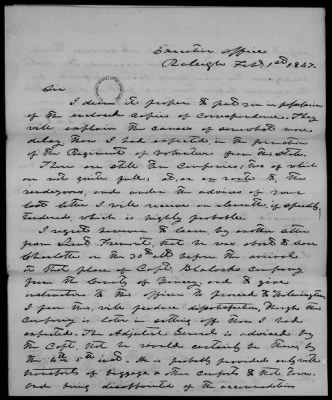 Executive Office
Raleigh Feb. 1st 1847.
Sir
I deem it proper to put you in possession
of the enclosed copies of Correspondence. They
will explain the causes of somewhat more
delay than I had expected, in the formation
of the Regiment of Volunteers from this State.
There are still ten Companies, two of which
are not quite full; at, or en route to, the
rendezvous, and under the advices of your
last letter I will receive an eleventh, if speedily
tendered, which is highly probable.
I regret however to learn, by another letter
from Lieut that he was about to leave
Charlotte on the 30th ult before the arrival
at that place of Capt. Blalocks company
from the County of and to give
instructions to this officer to proceed to Wilmington
I fear this will produce dissatisfaction, though this
Company is later in setting off than I had
expected. The Adjutant General is advised by
the Capt. that he would certainly be there by
the 4th or 5th inst. He is probably provided only with
transports of baggage & other comforts to that town.
and being disappointed of the accommodation